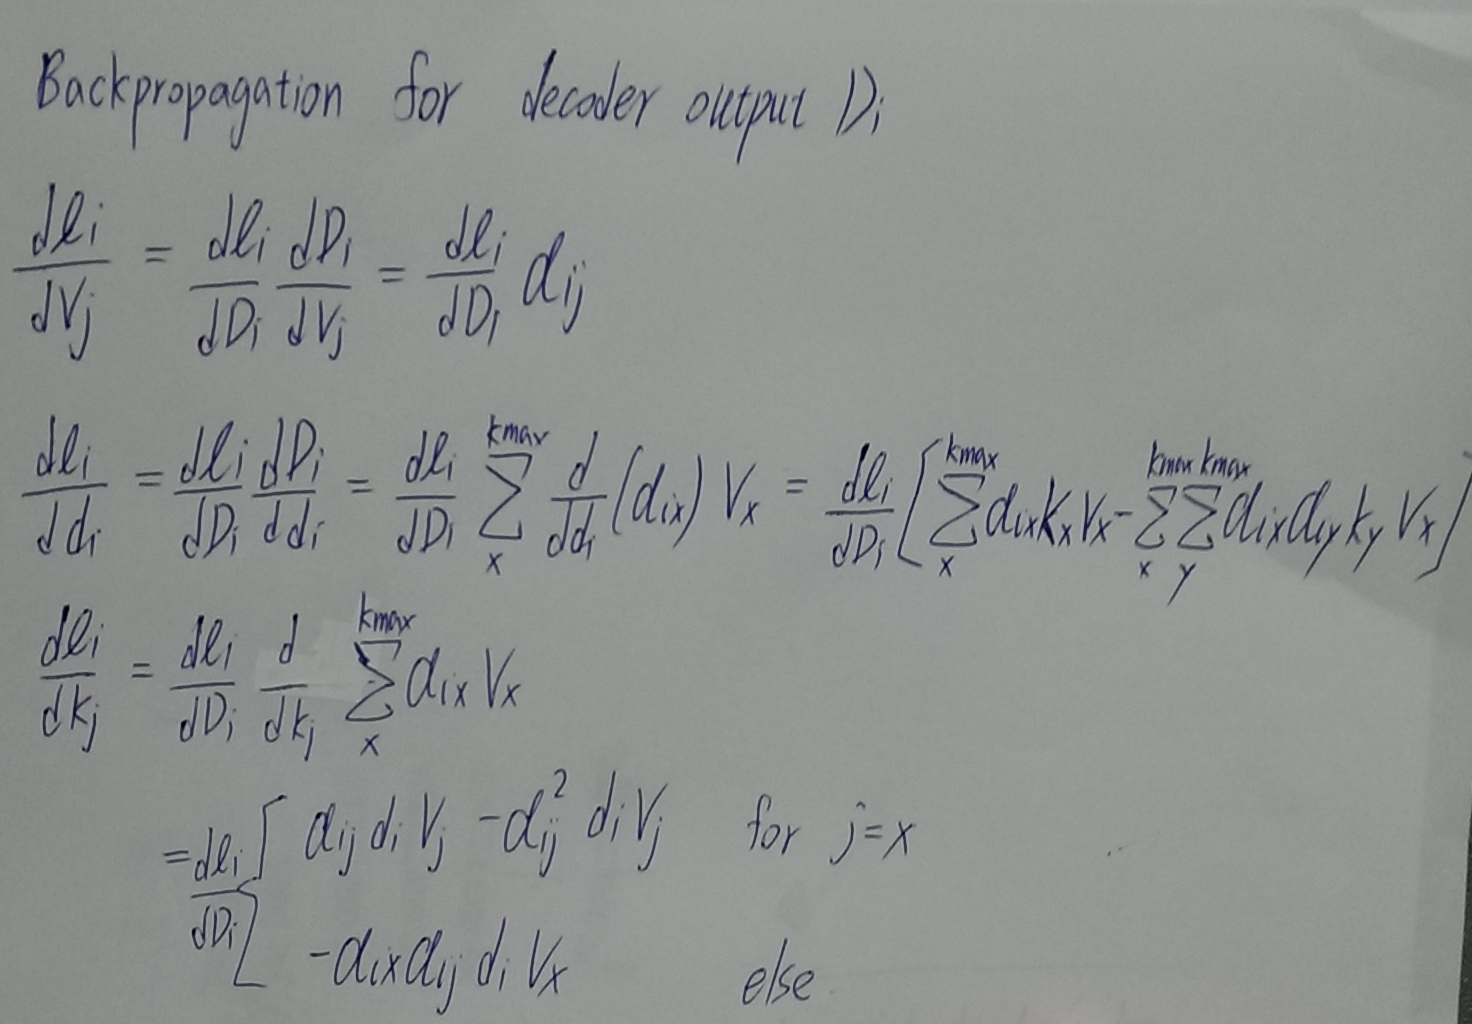 Backpropagation for decoder output Dᵢ
dℓᵢ/dVⱼ = dℓᵢ/dDᵢ dDᵢ/dVⱼ = dℓᵢ/dDᵢ αᵢⱼ
dℓᵢ/ddᵢ = dℓᵢ/dDᵢ dDᵢ/ddᵢ = dℓᵢ/dDᵢ ∑ₓ^{kmax} d/ddᵢ (αᵢₓ) Vₓ = dℓᵢ/dDᵢ [∑ₓ^{kmax} αᵢₓ kₓ Vₓ - ∑ₓ^{kmax} ∑_y^{kmax} αᵢₓ α_{iy} k_y Vₓ]
dℓᵢ/dkⱼ = dℓᵢ/dDᵢ d/dkⱼ ∑ₓ^{kmax} αᵢₓ Vₓ
= dℓᵢ/dDᵢ { αᵢⱼ dᵢ Vⱼ - αᵢⱼ² dᵢ Vⱼ for j=x
-αᵢₓ αᵢⱼ dᵢ Vₓ else